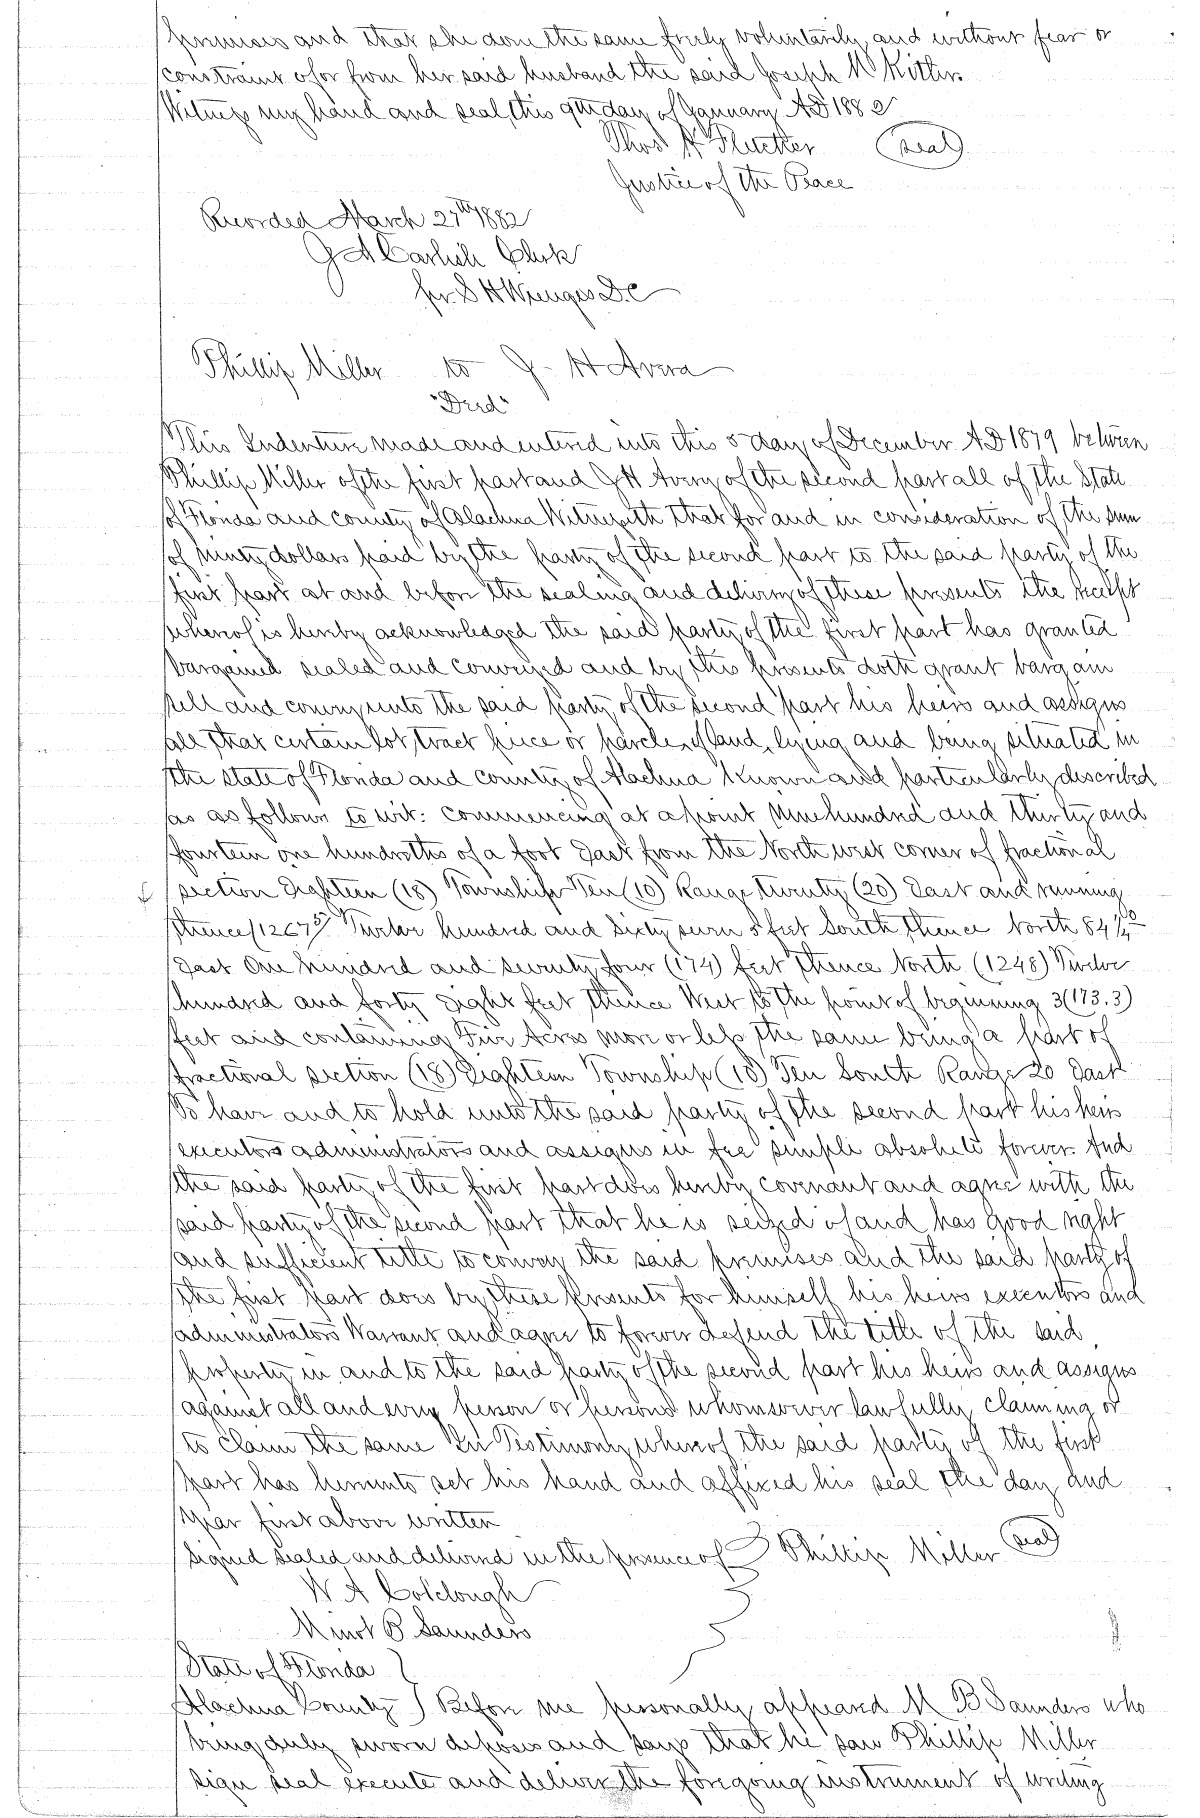 premises and that she done the same freely voluntarily and without fear or
constraint of or from her said husband the said Joseph
Witness my hand and seal this 9th day of January AD 1882
Thos H Fletcher (seal)
Justice of the Peace
Recorded March 27th 1882
J A Carlisle Clerk
per S H Wienges D.C
Phillip Miller to J H Avera
"Deed"
This Indenture made and entered into this 5 day of December AD 1879 between
Phillip Miller of the first part and J H Avery of the second part all of the State
of Florida and county of Alachua Witnesseth that for and in consideration of the sum
of ninety dollars paid by the party of the second part to the said party of the
first part at and before the sealing and delivery of these presents the receipt
whereof is hereby acknowledged the said party of the first part has granted
bargained sealed and conveyed and by this presents doth grant bargain
sell and convey unto the said party of the second part his heirs and assigns
all that certain lot, tract piece or parcle of land, lying and being situated in
the state of Florida and county of Alachua known and particularly described
as as follows to wit: commencing at a point Nine hundred and thirty and
fourteen one hundreths of a foot East from the North west corner of fractional
section Eighteen (18) Township Ten (10) Range twenty (20) East and running
thence (1267 5/ Twelve hundred and Sixty seven 5 feet South thence North 84 1/4°
East One hundred and seventy four (174) feet thence North (1248) Twelve
hundred and forty Eight feet thence West to the point of beginning 3(173.3)
feet and containing Five Acres more or less the same being a part of
fractional section (18) Eighteen Township (10) Ten South Range 20 East
To have and to hold unto the said party of the second part his heirs
executors administrators and assigns in fee simple absolute forever And
the said party of the first part does hereby covenant and agree with the
said party of the second part that he is seized of and has good right
and sufficient title to convey the said premises and the said party of
the first part does by these presents for himself his heirs executors and
administrators Warrant and agree to forever defend the title of the said
property in and to the said party of the second part his heirs and assigns
against all and every person or persons whomsoever lawfully claiming or
to claim the same In Testimony whereof the said party of the first
part has hereunto set his hand and affixed his seal the day and
year first above written
Signed sealed and delivered in the presence of Phillip Miller (seal)
W A Colclough
Minot B Saunders
State of Florida
Alachua County Before me personally appeared M B Saunders who
being duly sworn deposes and says that he saw Phillip Miller
sign seal execute and deliver the foregoing instrument of writing